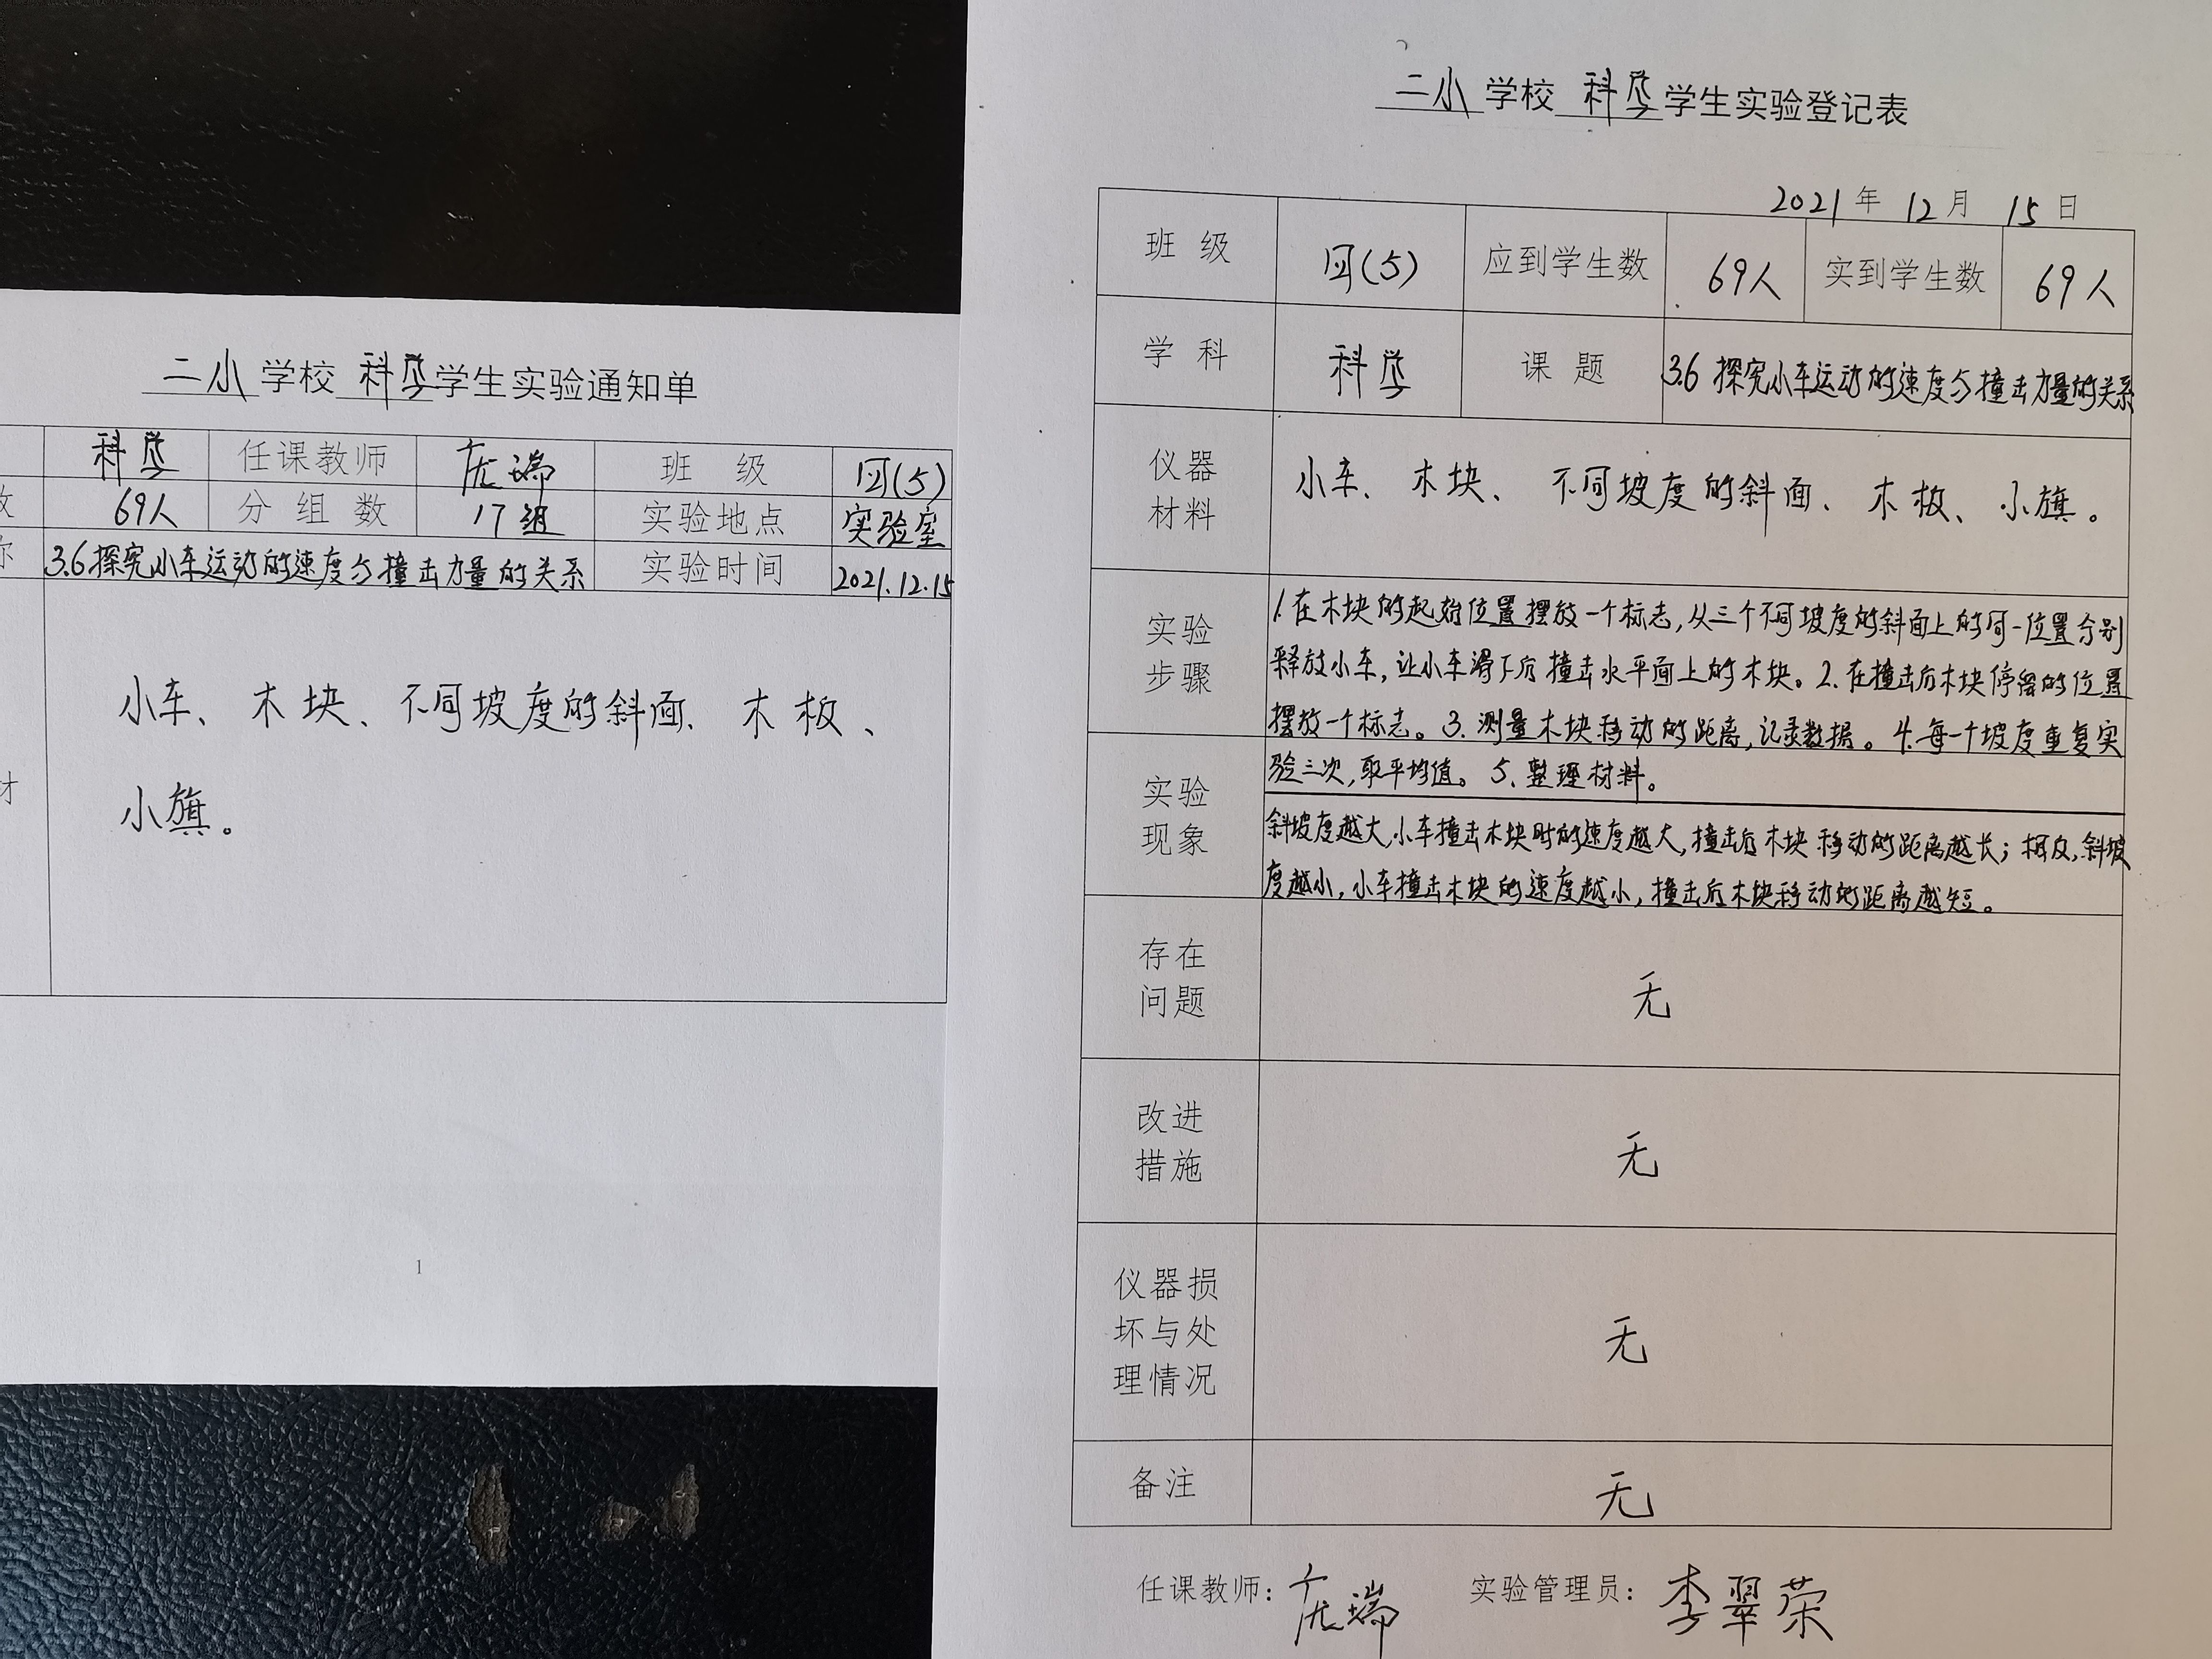 二小学校科学学生实验通知单
科学 任课教师 庞瑞 班 级 四(5)
数 69人 分组数 17组 实验地点 实验室
称 3.6探究小车运动的速度与撞击力量的关系 实验时间 2021.12.15
小车、木块、不同坡度的斜面、木板、
材
小旗。
1
二小学校科学学生实验登记表
2021年12月15日
班 级 四(5) 应到学生数 69人 实到学生数 69人
学 科 科学 课 题 3.6 探究小车运动的速度与撞击力量的关系
仪器
材料
小车、木块、不同坡度的斜面、木板、小旗。
实验
步骤
1.在木块的起始位置摆放一个标志,从三个不同坡度的斜面上的同一位置分别
释放小车,让小车滑下后撞击水平面上的木块。2.在撞击后木块停留的位置
摆放一个标志。3.测量木块移动的距离,记录数据。4.每一个坡度重复实
验三次,取平均值。5、整理材料。
实验
现象
斜坡度越大,小车撞击木块时的速度越大,撞击后木块移动的距离越长;相反,斜坡
度越小,小车撞击木块的速度越小,撞击后木块移动的距离越短。
存在
问题
无
改进
措施
无
仪器损
坏与处
理情况
无
备注 无
任课教师:庞瑞 实验管理员:李翠荣